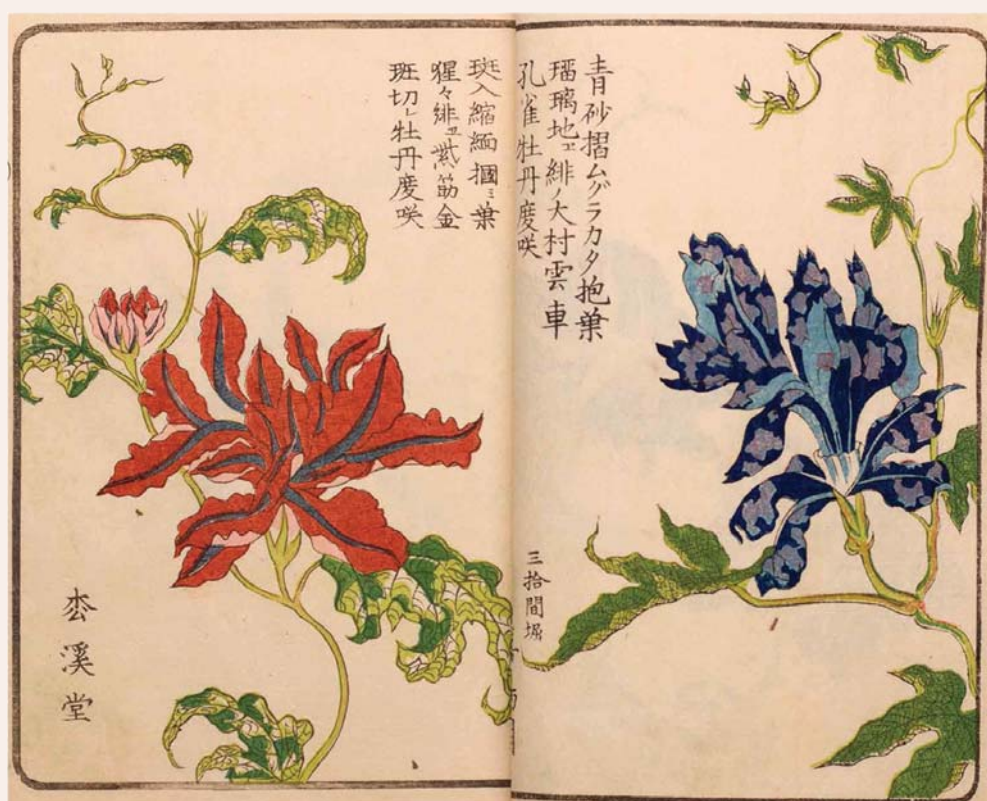 青砂摺ムグラカタ抱葉
瑠璃地エ緋ノ大村雲車
孔雀牡丹度咲
三拾間堀
斑入縮緬掴ミ葉
猩々緋エ筋金
斑切レ牡丹度咲
枩溪堂